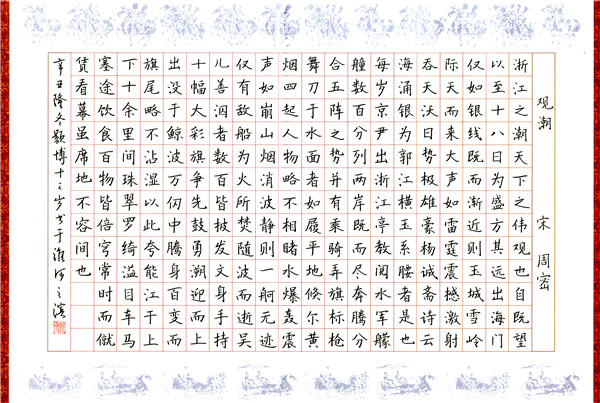 观潮 宋 周密
浙江之潮天下之伟观也自既望
以至十八日为盛方其远出海门
仅如银线既而渐近则玉城雪岭
际天而来大声如雷霆震撼激射
吞天沃日势极雄豪杨诚斋诗云
海涌银为郭江横玉系腰者是也
每岁京尹出浙江亭教阅水军艨
艟数百分列两岸既而尽奔腾分
合五阵之势并有乘骑弄旗标枪
舞刀于水面者如履平地倏尔黄
烟四起人物略不相睹水爆轰震
声如崩山烟消波静则一舸无迹
仅有敌船为火所焚随波而逝吴
儿善泅者数百皆披发文身手持
十幅大彩旗争先鼓勇溯迎而上
出没于鲸波万仞中腾身百变而
旗尾略不沾湿以此夸能江干上
下十余里间珠翠罗绮溢目车马
塞途饮食百物皆倍穹常时而僦
赁看幕虽席地不容间也
辛丑隆冬颢博十三岁书于淮河之滨